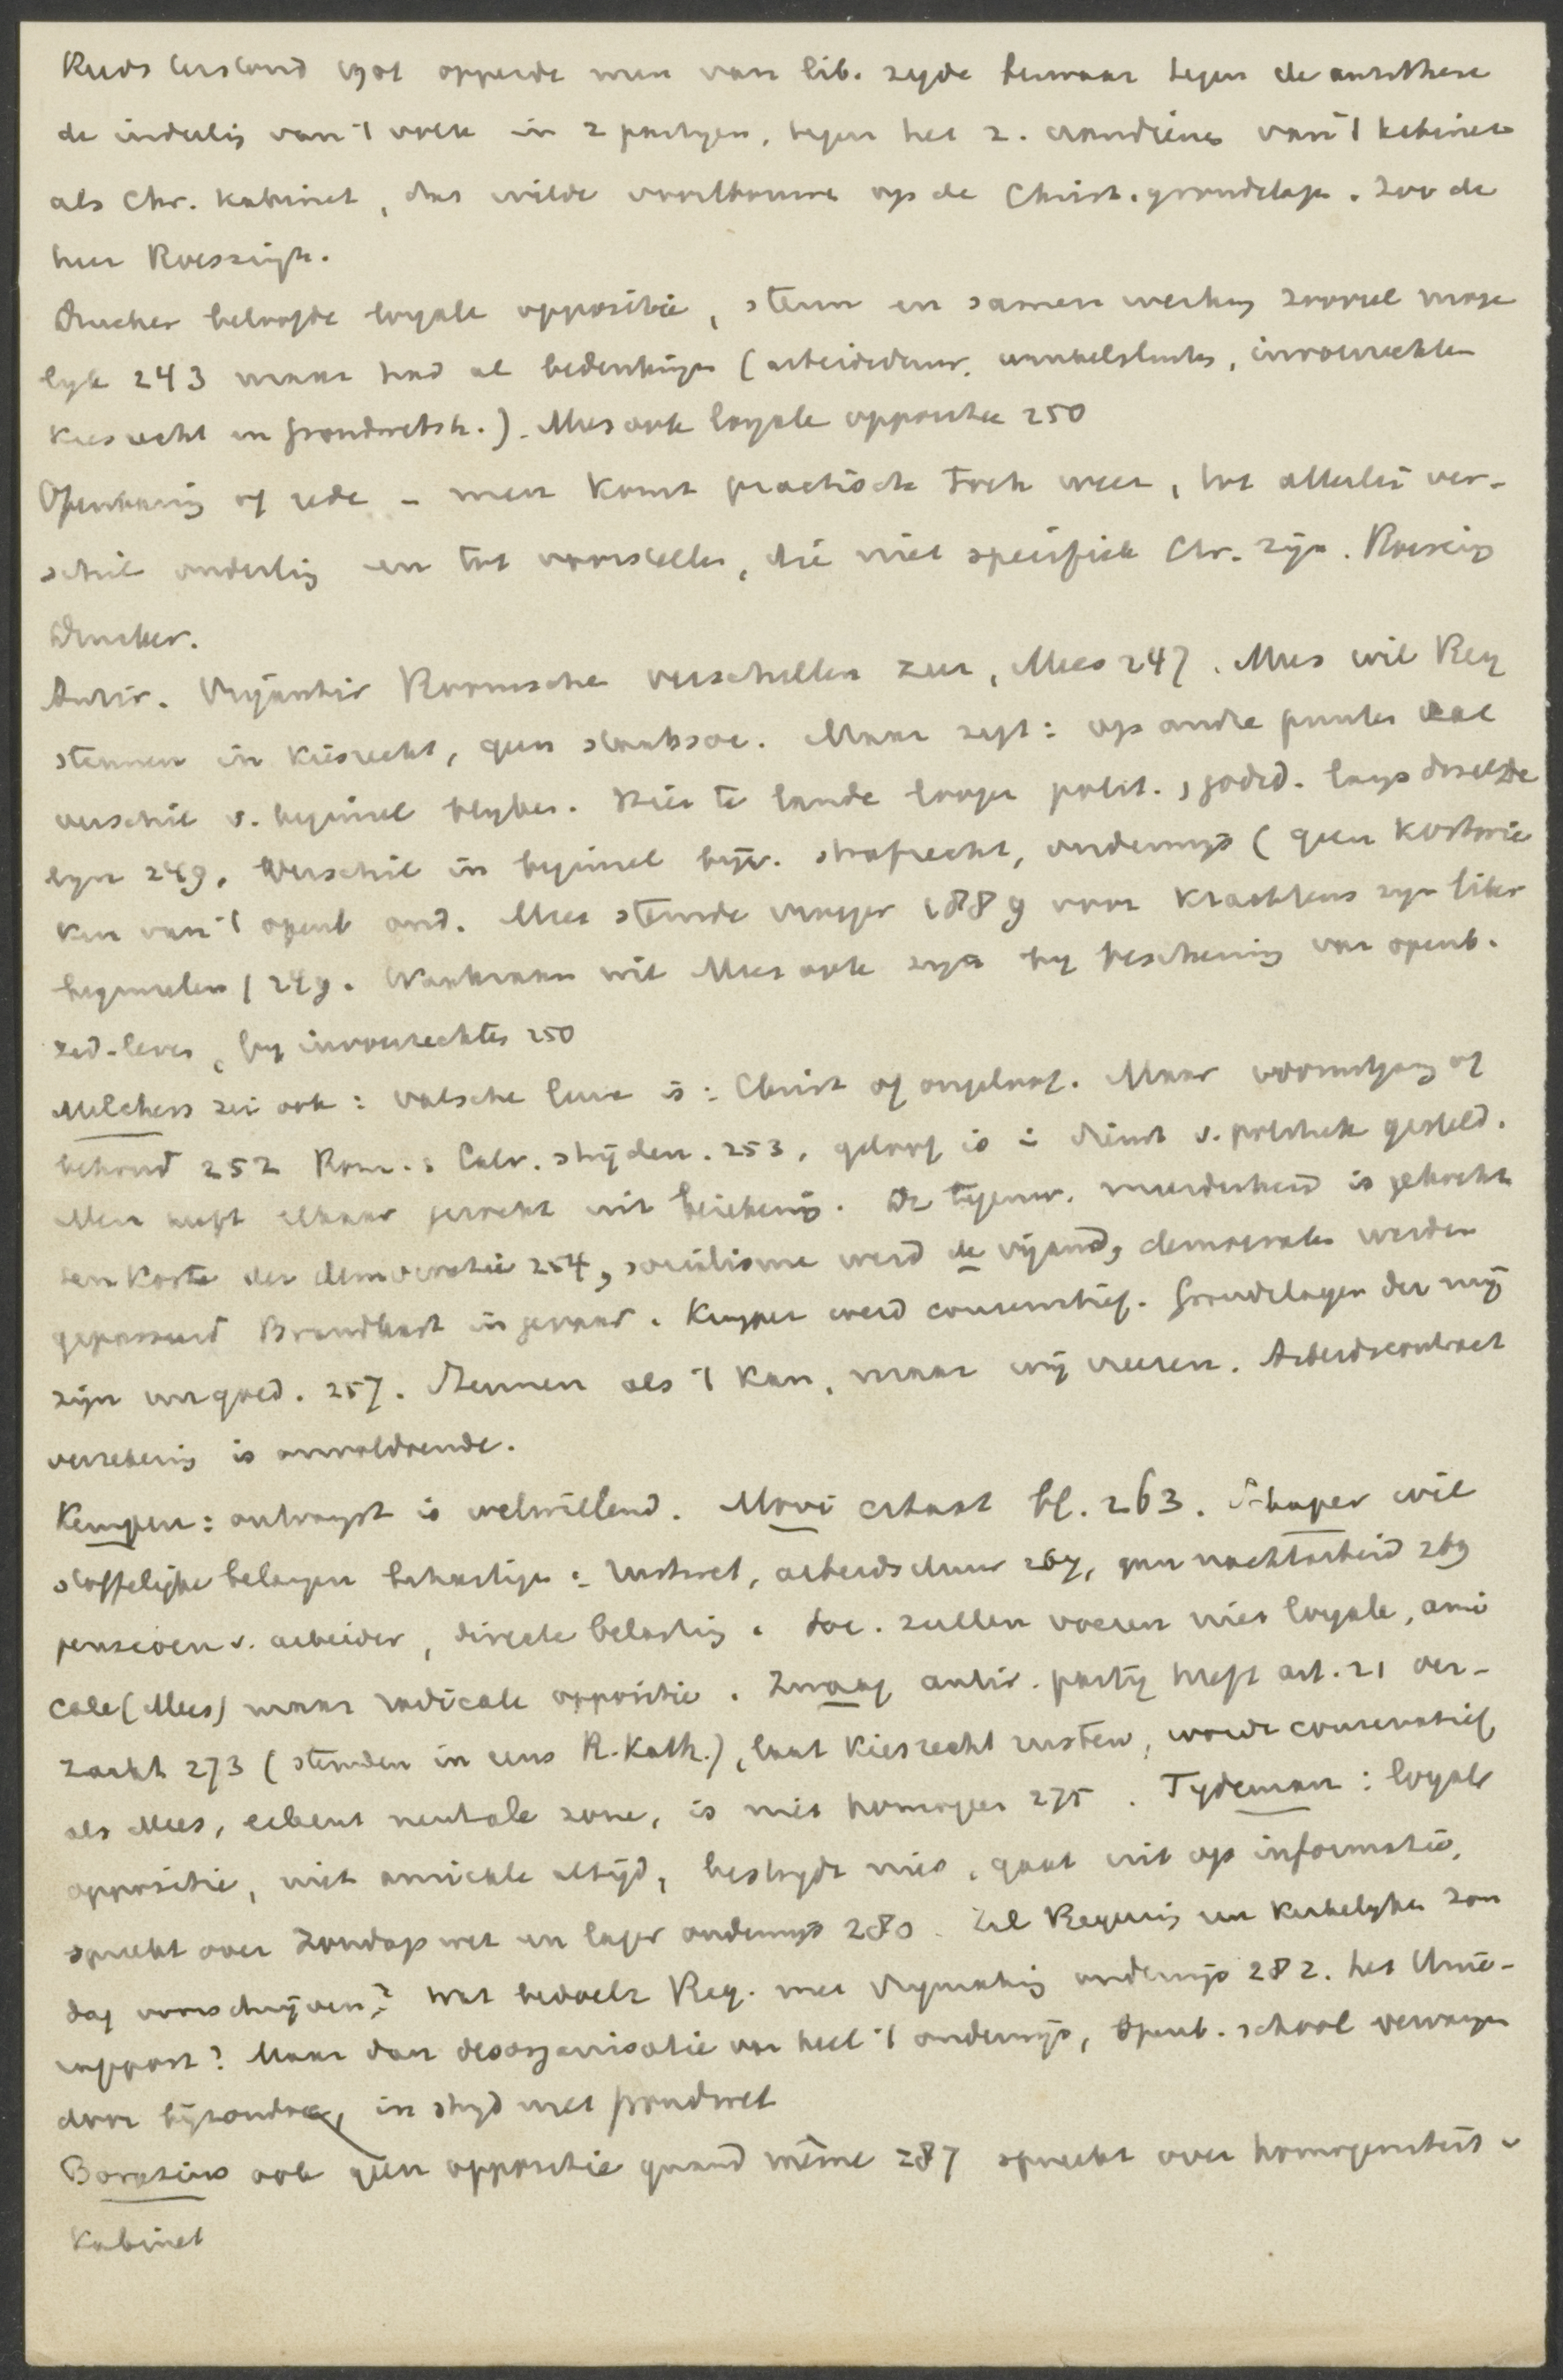 Reeds terstond 1901 opperde men van lib. zijde bezwaar tegen de antithese
de indeelig van 't volk in 2 partijen, tegen het z. aandienen van 't kabinet
als Chr. kabinet, dat wilde voortbouwen op de Christ. grondslagen. Zoo de
heer Roessingh.
Drucker beloofde loyale oppositie, steun en samenwerking zooveel moge
lijk 243 maar had al bedenkingen (arbeidsduur, winkelsluiting, invoerrechten
kiesrecht en grondwetsh.). Mees ook loyale oppositie 250
Openbaring of rede - men komt practisch toch weer, tot allerlei ver-
schil onderling en tot voorstellen, die niet specifiek Chr. zijn. Roessingh
Drucker.
Antir. Vrijantir Roomsche verschillen zeer, Mees 247. Mees wil Reg
steunen in kiesrecht, geen staatssoc. Maar zegt: op andre punten zal
verschil v. beginsel blijken. Hier te lande loopen polit. & godsd. langs dezelfde
lijn 249. Verschil in beginsel bijv. strafrecht, onderwijs (geen
van 't openb ond. Mees stemde vroeger 1889 voor krachtens zijn liber
beginselen) 249. Waakzaam wil Mees ook zijn bij bescherming van openb.
zed. leven, bij invoerrechten 250
Melchers zei ook: valsche leuze is: Christ of ongeloof. Maar vooruitgang of
behoud 252 Rom. & Calv. strijden. 253, geloof is in dienst v. politiek gesteld.
Men heeft elkaar gerekt uit berekening. De tegenw. meerderheid is gekocht
ten koste der democratie 254, socialisme werd de vijand, democraten werden
gepasseerd Brandkast in gevaar. Kuyper werd conservatief. Grondslagen der mij
zijn ongoed. 257. Steunen als 't kan, maar wij vreezen. Arbeidscontract
verzekering is onvoldoende.
Kempen: ontvangst is welwillend. Move bl. 263. Schaper wil
stoffelijke belangen behartigen: rustwet, arbeidsduur 267, geen nachtarbeid 269
pensioen v. arbeider, directe belasting. Soc. zullen voeren niet loyale, ami
cale (Mees) maar radicale oppositie. Zwaag antir. partij heeft art. 21 ver-
zaakt 273 (stemden in eens R. Kath.), laat kiesrecht rusten, wordt conservatief
als Mees, erkent neutrale zone, is niet homogeen 275. Tydeman: loyale
oppositie, niet amicale altijd, bestrijdt niet, gaat uit op informatie,
spreekt over Zondagswet en lager onderwijs 280. Zal Regering een kerkelijken Zon
dag voorschrijven? Wat bedoelt Reg. met vrijmaking onderwijs 282. het Unie-
rapport? Maar dan desorganisatie van heel 't onderwijs, openb. school vervangen
door bijzondere, in strijd met grondwet
Borgesius ook geen oppositie quand même 287 spreekt over homogeniteit v
Kabinet